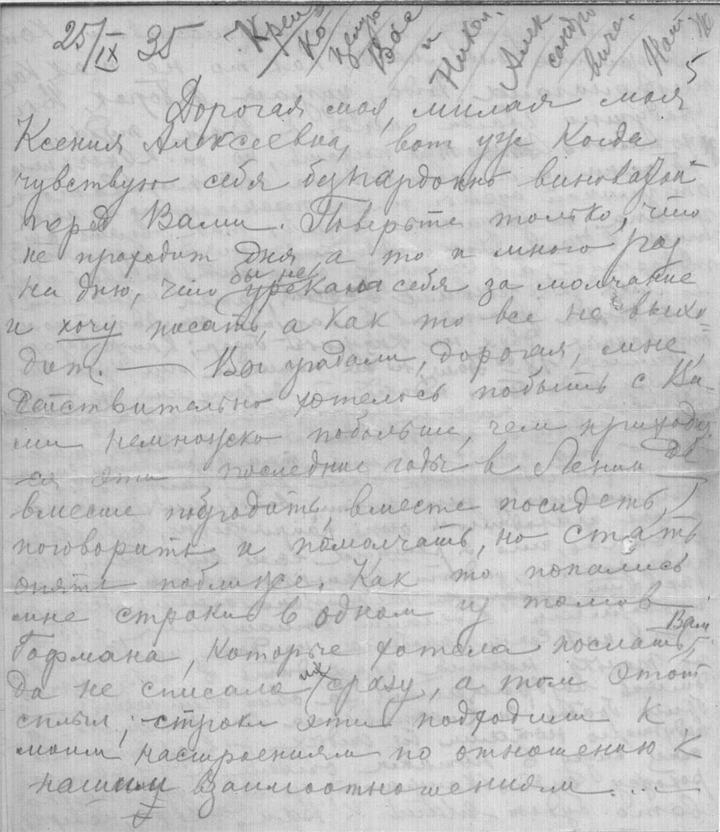 25/IX 35 Креп
ко целую
Вас
и
Никол.
Алек
сандро
вича.
Дорогая моя, милая моя
Ксения Алексеевна, вот уже когда
чувствую себя безпардонно виноватой
перед Вами. Поверьте только, что
не проходит дня, а то и много раз
на дню, что бы не упрекала себя за молчание
и хочу писать, а как то все не выхо-
дит. — Вы угадали, дорогая, мне
действительно хотелось побыть с Ва-
ми немножко побольше, чем приходит
ся эти последние годы в Ленин
вместе погулять, вместе посидеть,
поговорить и помолчать, но стать
опять поближе. Как то попались
мне строки в одном из томов
Гофмана, которые хотела послать Вам,
да не списала их сразу, а том этот
сплыл; строки эти подходили к
моим настроениям по отношению к
нашим взаимоотношениям ....